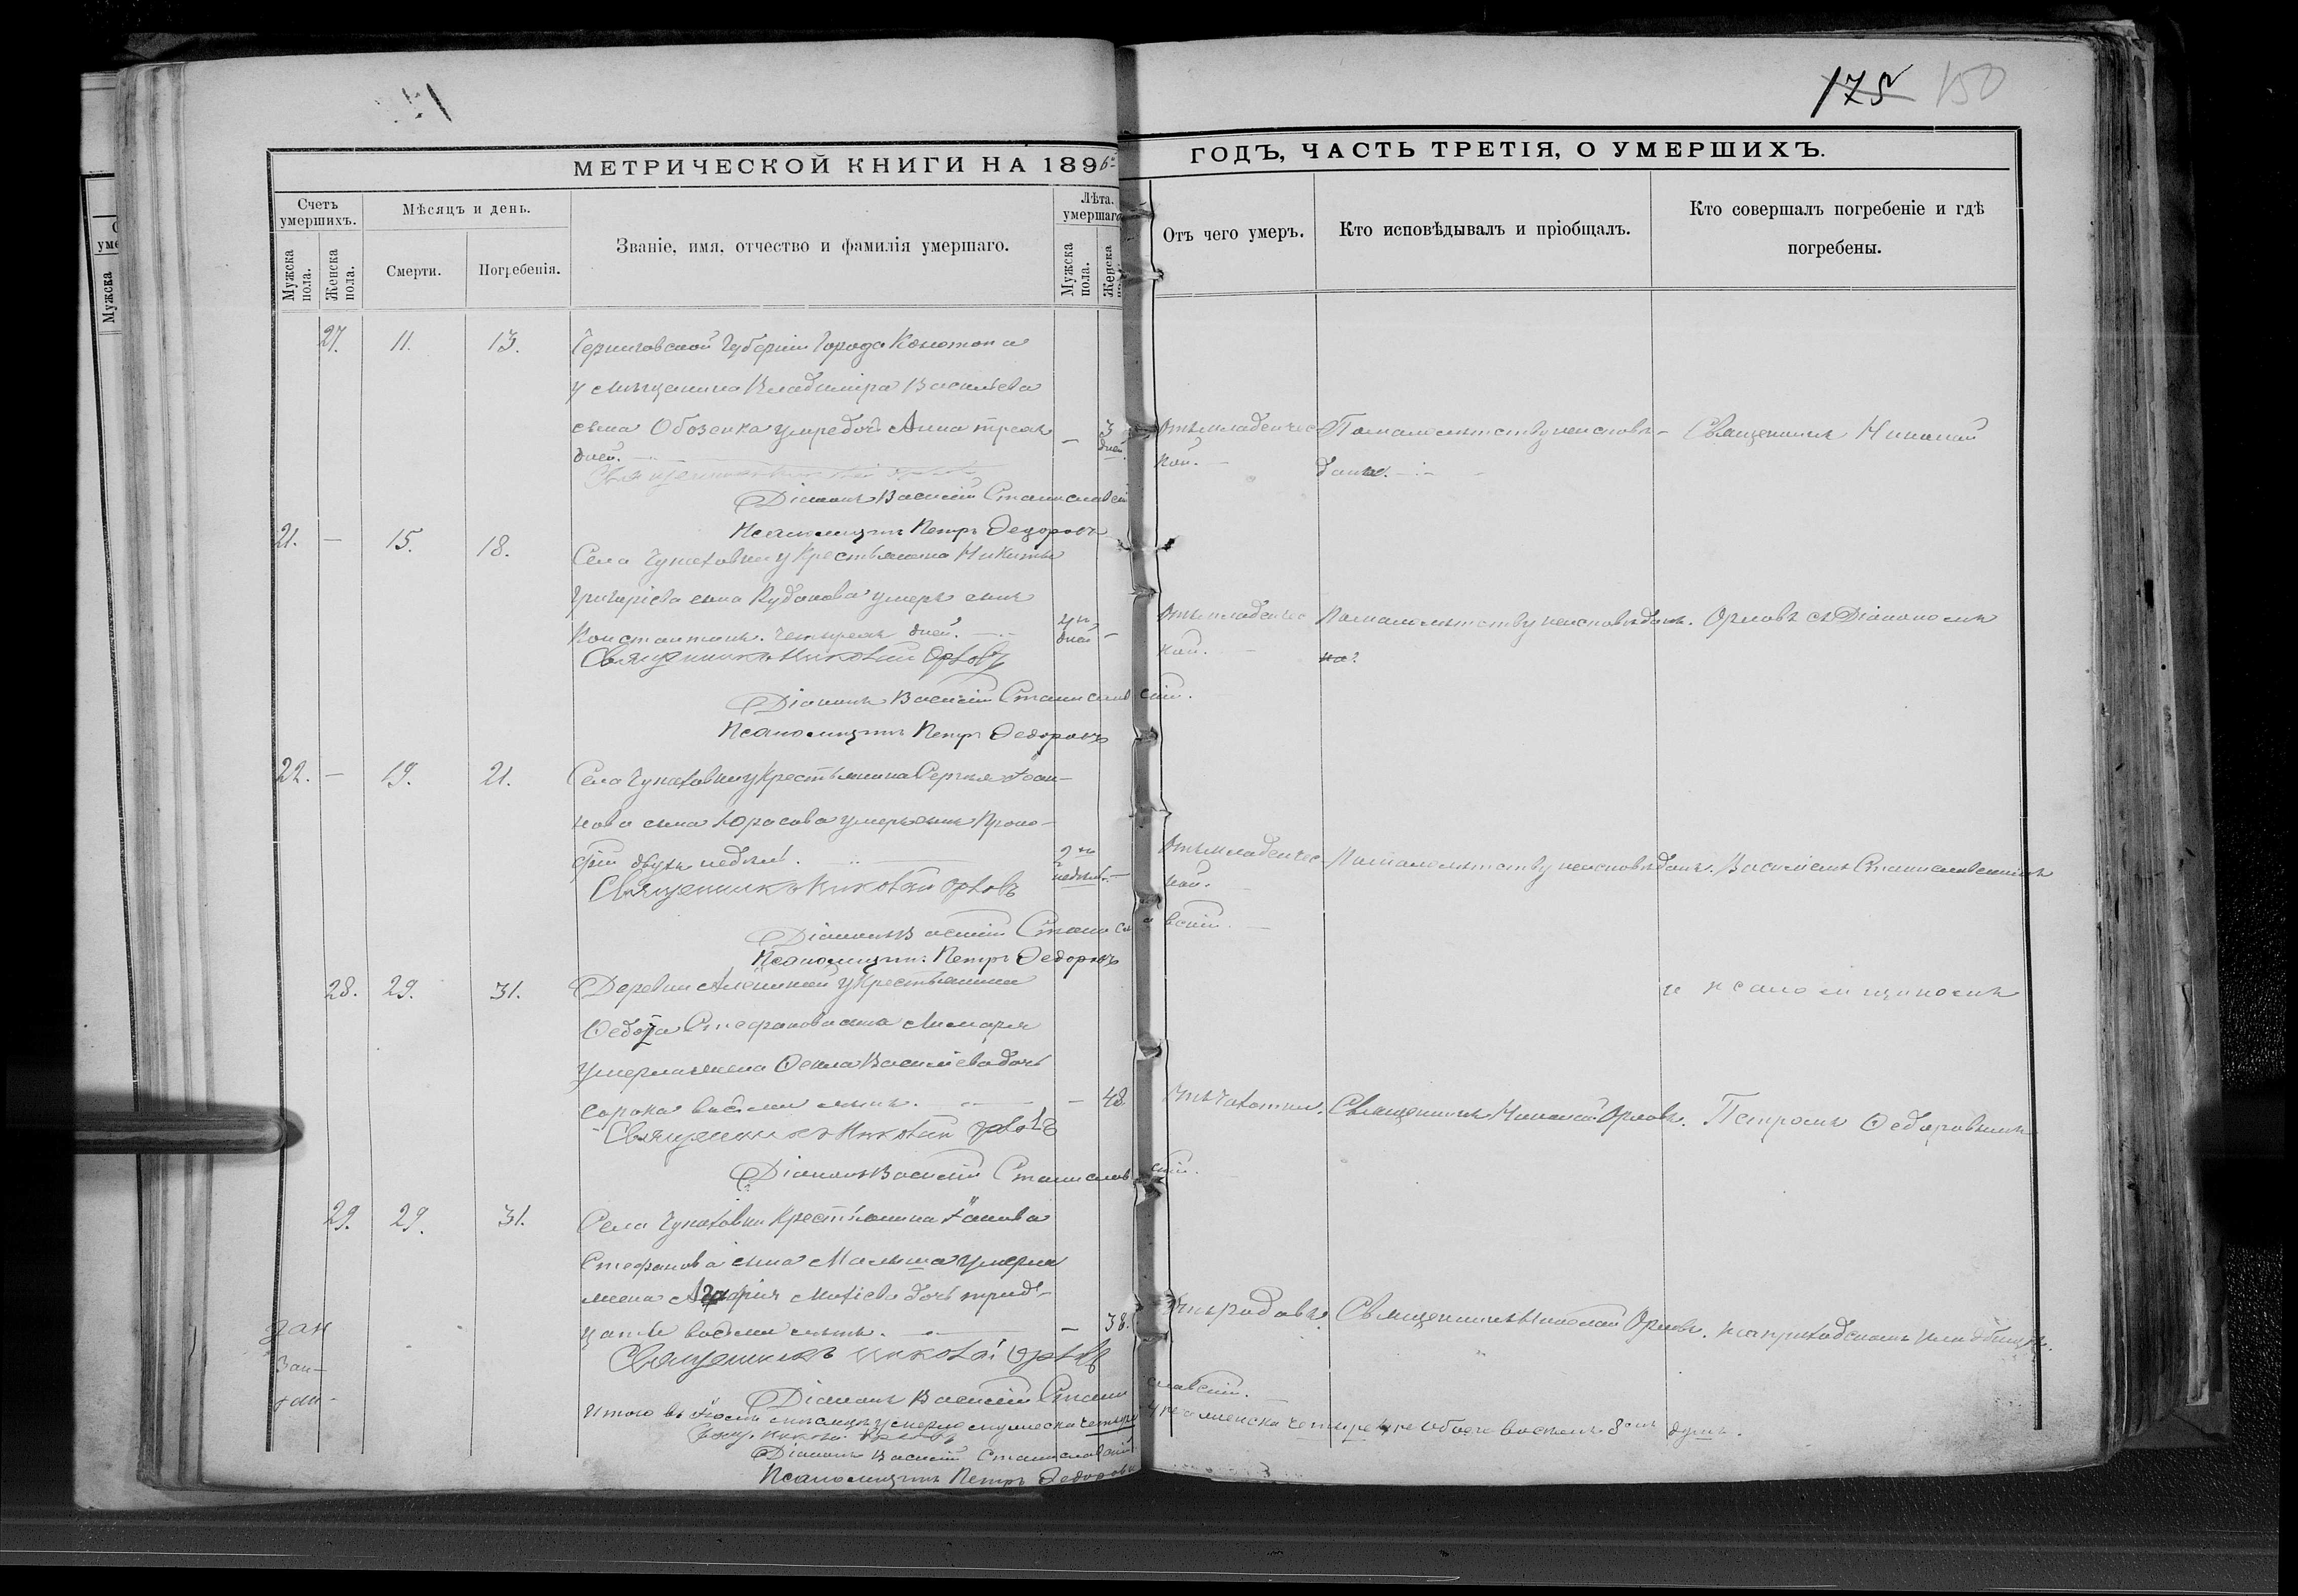 175 150
МЕТРИЧЕСКОЙ КНИГИ НА 1896й
ГОДЪ, ЧАСТЬ ТРЕТІЯ, О УМЕРШИХЪ.
Счетъ умершихъ.
Мужска пола.
Женска пола.
Мѣсяцъ и день.
Смерти.
Погребенія.
Званіе, имя, отчество и фамилія умершаго.
Лѣта. умершаго
Мужска пола.
Женска
Отъ чего умеръ.
Кто исповѣдывалъ и пріобщалъ.
Кто совершалъ погребеніе и гдѣ погребены.
27. 11. 13. Черниговской Губерніи Города Конотопа
у мѣщанина Владиміра Васильева
сына Обозенка умре дочь Анна трехъ
дней.
3 дней
Отъ младенчес-
кой.
По малолѣтству неисповѣ-
дана.
Священникъ Николай
Діаконъ Василій Станиславскій
Псаломщикъ Петръ Федоровъ
21. — 15. 18. Села Чупаховки у Крестьянина Никиты
Григоріева сына Кудакова умеръ сынъ
Константинъ. Четырехъ дней.
4хъ дней —
Отъ младенчес
кой.
По малолѣтству неисповѣданъ.
Орловъ съ Діакономъ
Священникъ Николай Орловъ
Діаконъ Василій Станиславскій.
Псаломщикъ Петръ Федоровъ
22. — 19. 21. Села Чупаховки у Крестьянина Сергѣя Іоан-
нова сына Юрасова умеръ сынъ Проко-
пій двухъ недѣль.
2хъ недѣль. —
Отъ младенчес-
кой.
По малолѣтству неисповѣданъ.
Василіемъ Станиславскимъ
Священникъ Николай Орловъ
Діаконъ Василій Станиславскій.
Псаломщикъ Петръ Федоровъ
28. 29. 31. Деревни Алешиной у Крестьянина
Федора Стефанова сына Лимаря
умерла жена Фекла Васильева дочь
сорока восьми лѣтъ.
— 48
Отъ чахотки.
Священникъ Николай Орловъ.
и псаломщикомъ
Петромъ Федоровымъ
Священникъ Николай Орловъ
Діаконъ Василій Станиславскій.
29. 29. 31. Села Чупаховки Крестьянина Іакова
Стефанова сына Малыша умерла
жена
дочь трид-
цати восьми лѣтъ.
— 38.
Отъ родовъ.
Священникъ Николай Орловъ.
на приходскомъ кладбищѣ.
Священникъ Николай Орловъ
Діаконъ Василій Станиславскій.
Итого въ
мѣсяцѣ умерло мужеска четыре
4 женска четыре 4 обоего восемь 8 душъ.
Свящ. Николай Орловъ
Діаконъ Василій Станиславскій
Псаломщикъ Петръ Федоровъ